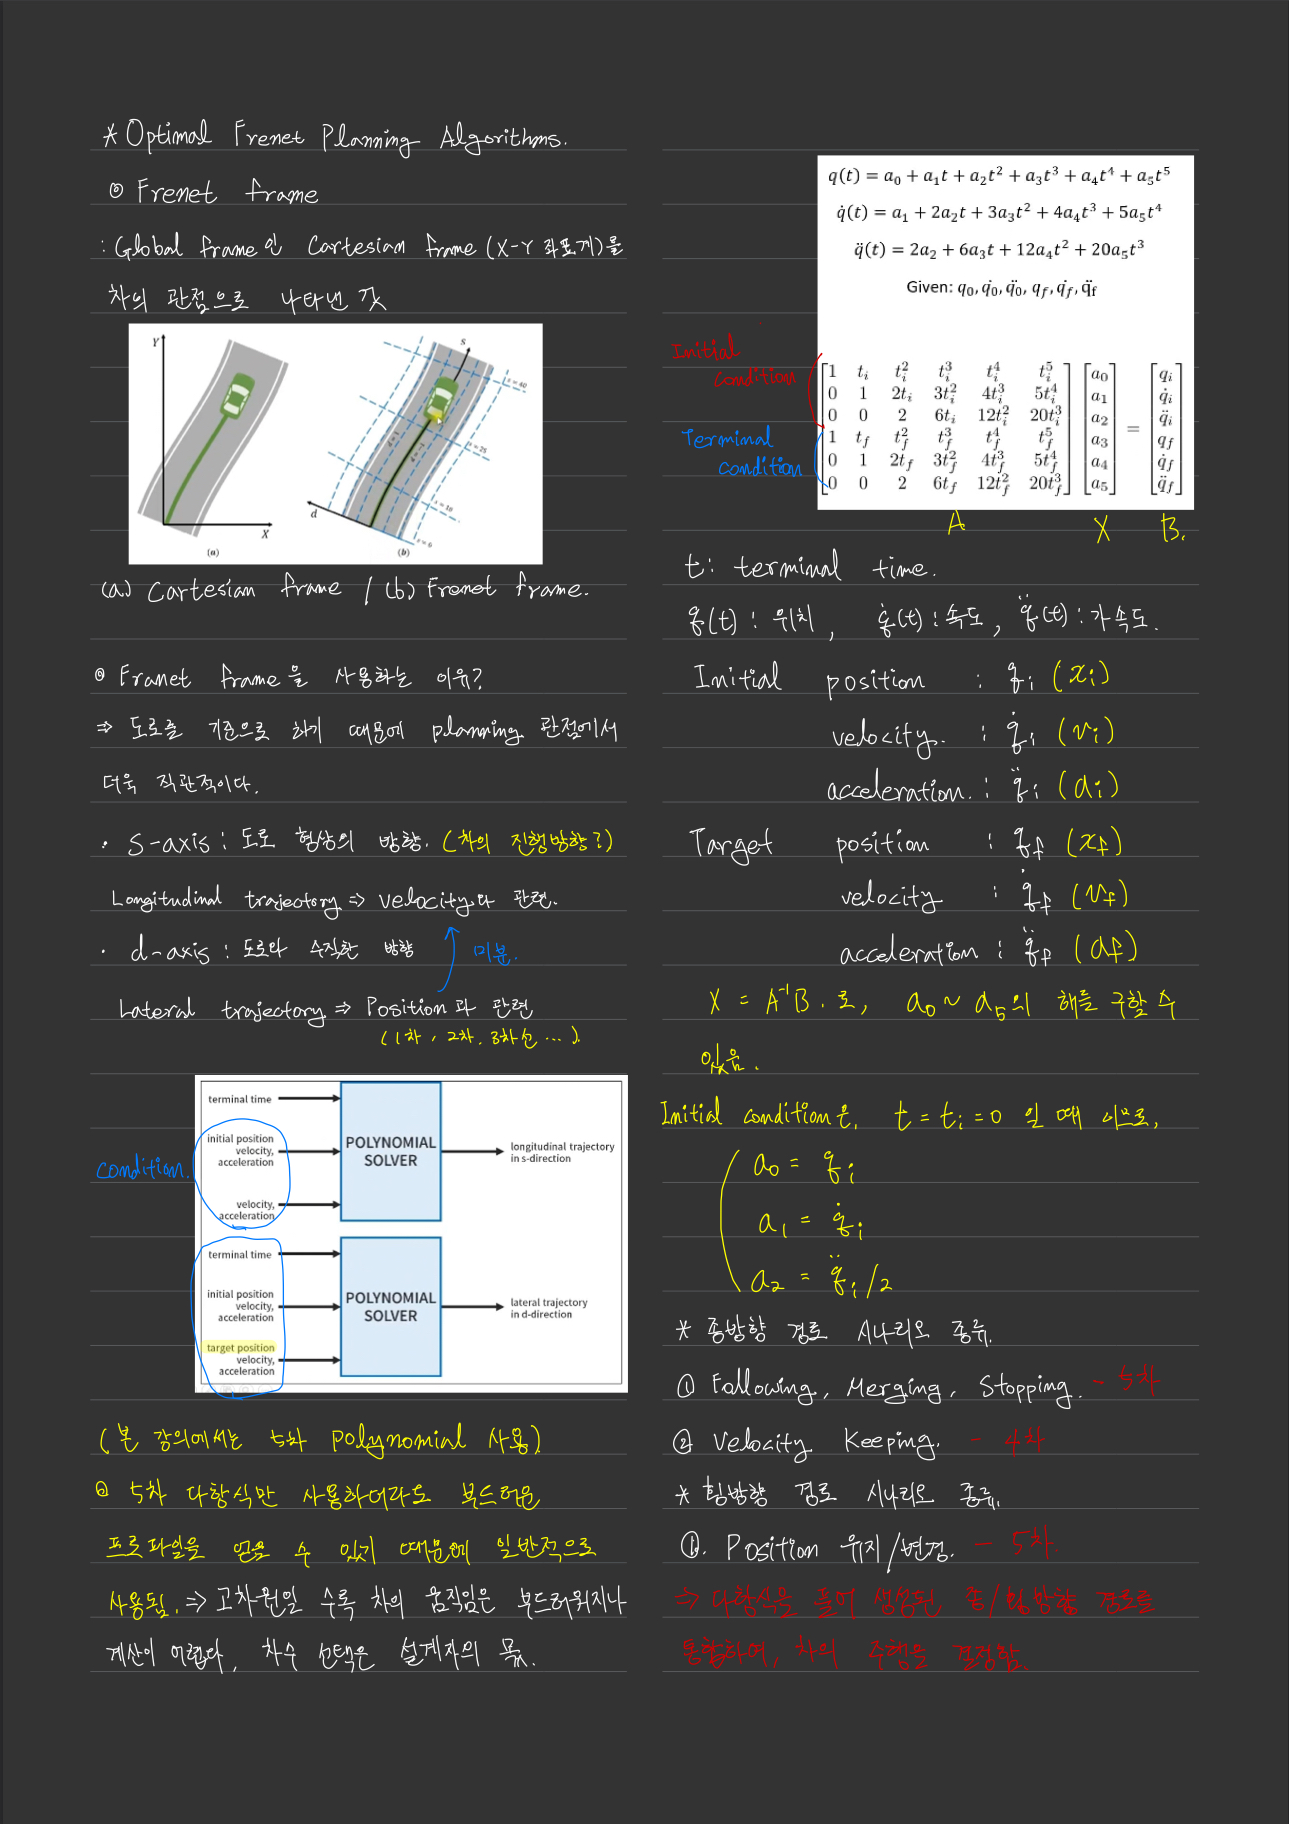 * Optimal Frenet Planning Algorithms.
◎ Frenet frame
: Global frame인 Cartesian frame (X-Y 좌표계)를
차의 관점으로 나타낸 것
Y
X
(a)
s
d
(b)
(a) Cartesian frame / (b) Frenet frame.
◎ Franet frame을 사용하는 이유?
⇒ 도로를 기준으로 하기 때문에 planning 관점에서
더욱 직관적이다.
· S-axis : 도로 형상의 방향. (차의 진행방향?)
Longitudinal trajectory ⇒ velocity와 관련.
· d-axis : 도로와 수직한 방향
미분.
Lateral trajectory ⇒ Position과 관련
(1차, 2차, 3차선 ...).
condition.
terminal time
initial position
velocity,
acceleration
velocity,
acceleration
POLYNOMIAL
SOLVER
longitudinal trajectory
in s-direction
terminal time
initial position
velocity,
acceleration
target position
velocity,
acceleration
POLYNOMIAL
SOLVER
lateral trajectory
in d-direction
(본 강의에서는 5차 polynomial 사용)
◎ 5차 다항식만 사용하더라도 부드러운
프로파일을 얻을 수 있기 때문에 일반적으로
사용됨. ⇒ 고차원일 수록 차의 움직임은 부드러워지나
계산이 어렵다, 차수 선택은 설계자의 몫.
q(t) = a₀ + a₁t + a₂t² + a₃t³ + a₄t⁴ + a₅t⁵
q̇(t) = a₁ + 2a₂t + 3a₃t² + 4a₄t³ + 5a₅t⁴
q̈(t) = 2a₂ + 6a₃t + 12a₄t² + 20a₅t³
Given: q₀, q̇₀, q̈₀, q_f, q̇_f, q̈_f
Initial
condition
Terminal
condition
1 t_i t_i² t_i³ t_i⁴ t_i⁵ a₀ q_i
0 1 2t_i 3t_i² 4t_i³ 5t_i⁴ a₁ q̇_i
0 0 2 6t_i 12t_i² 20t_i³ a₂ q̈_i
1 t_f t_f² t_f³ t_f⁴ t_f⁵ a₃ = q_f
0 1 2t_f 3t_f² 4t_f³ 5t_f⁴ a₄ q̇_f
0 0 2 6t_f 12t_f² 20t_f³ a₅ q̈_f
A X B.
t : terminal time.
q(t) : 위치, q̇(t) : 속도, q̈(t) : 가속도.
Initial position : q_i (x_i)
velocity. : q̇_i (v_i)
acceleration. : q̈_i (a_i)
Target position : q_f (x_f)
velocity : q̇_f (v_f)
acceleration : q̈_f (a_f)
X = A⁻¹B. 로, a₀ ~ a₅의 해를 구할 수
있음.
Initial condition은, t = t_i = 0 일 때 이므로,
a₀ = q_i
a₁ = q̇_i
a₂ = q̈_i/2
* 종방향 경로 시나리오 종류.
① Following, Merging, Stopping. - 5차
② Velocity Keeping. - 4차
* 횡방향 경로 시나리오 종류.
①. Position 유지/변경. - 5차.
⇒ 다항식을 풀어 생성된 종/횡방향 경로를
통합하여, 차의 주행을 결정함.